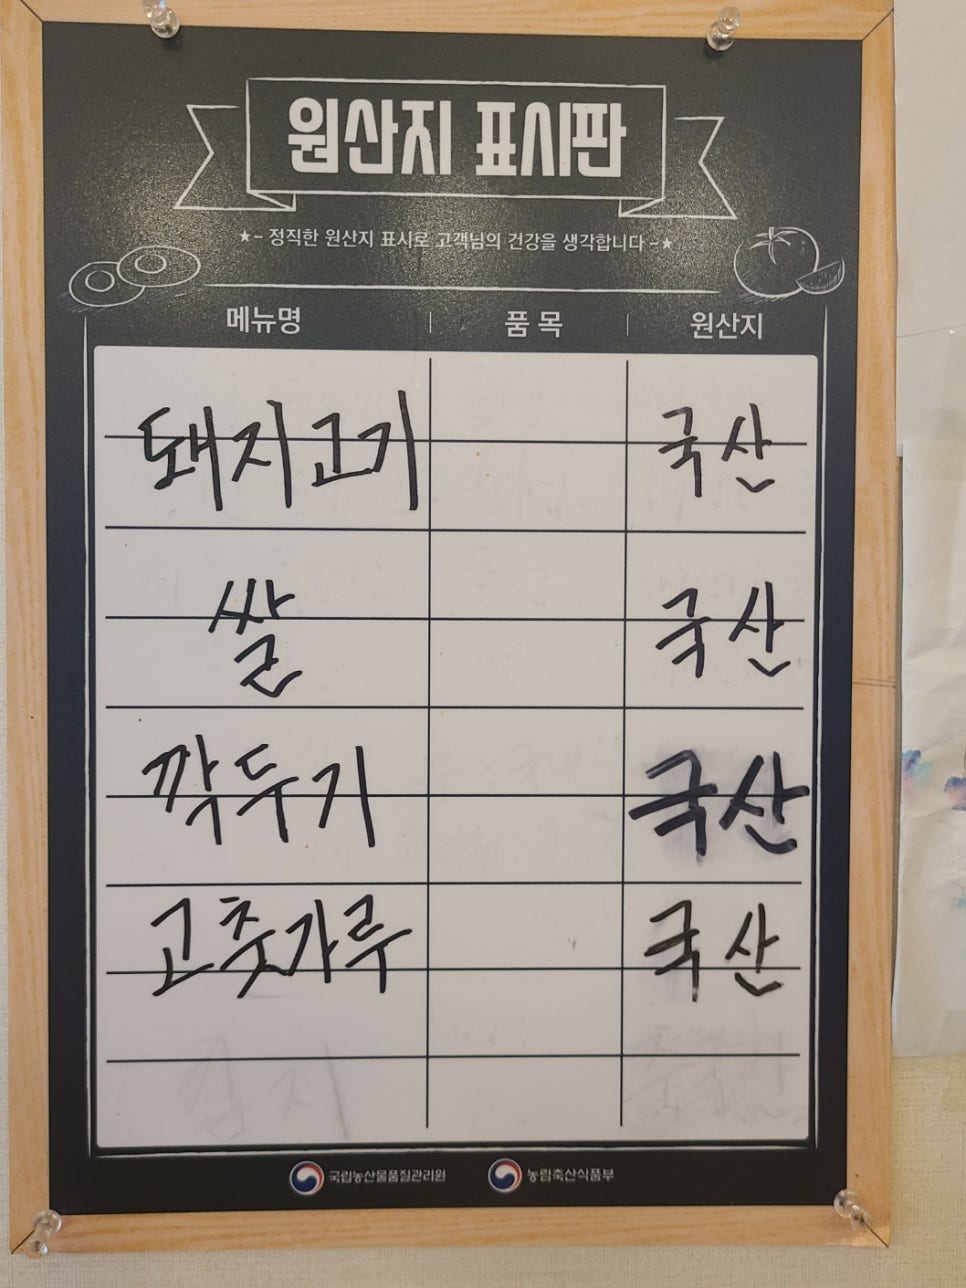 원산지 표시판
★~ 정직한 원산지 표시로 고객님의 건강을 생각합니다 ~★
메뉴명 품 목 원산지
돼지고기 국산
쌀 국산
깍두기 국산
고춧가루 국산
국립농산물품질관리원 농림축산식품부